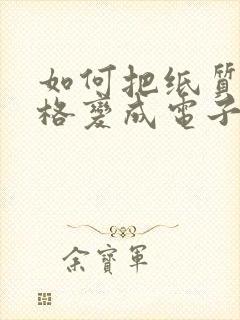 如何把纸质
格變成電子
余寶軍